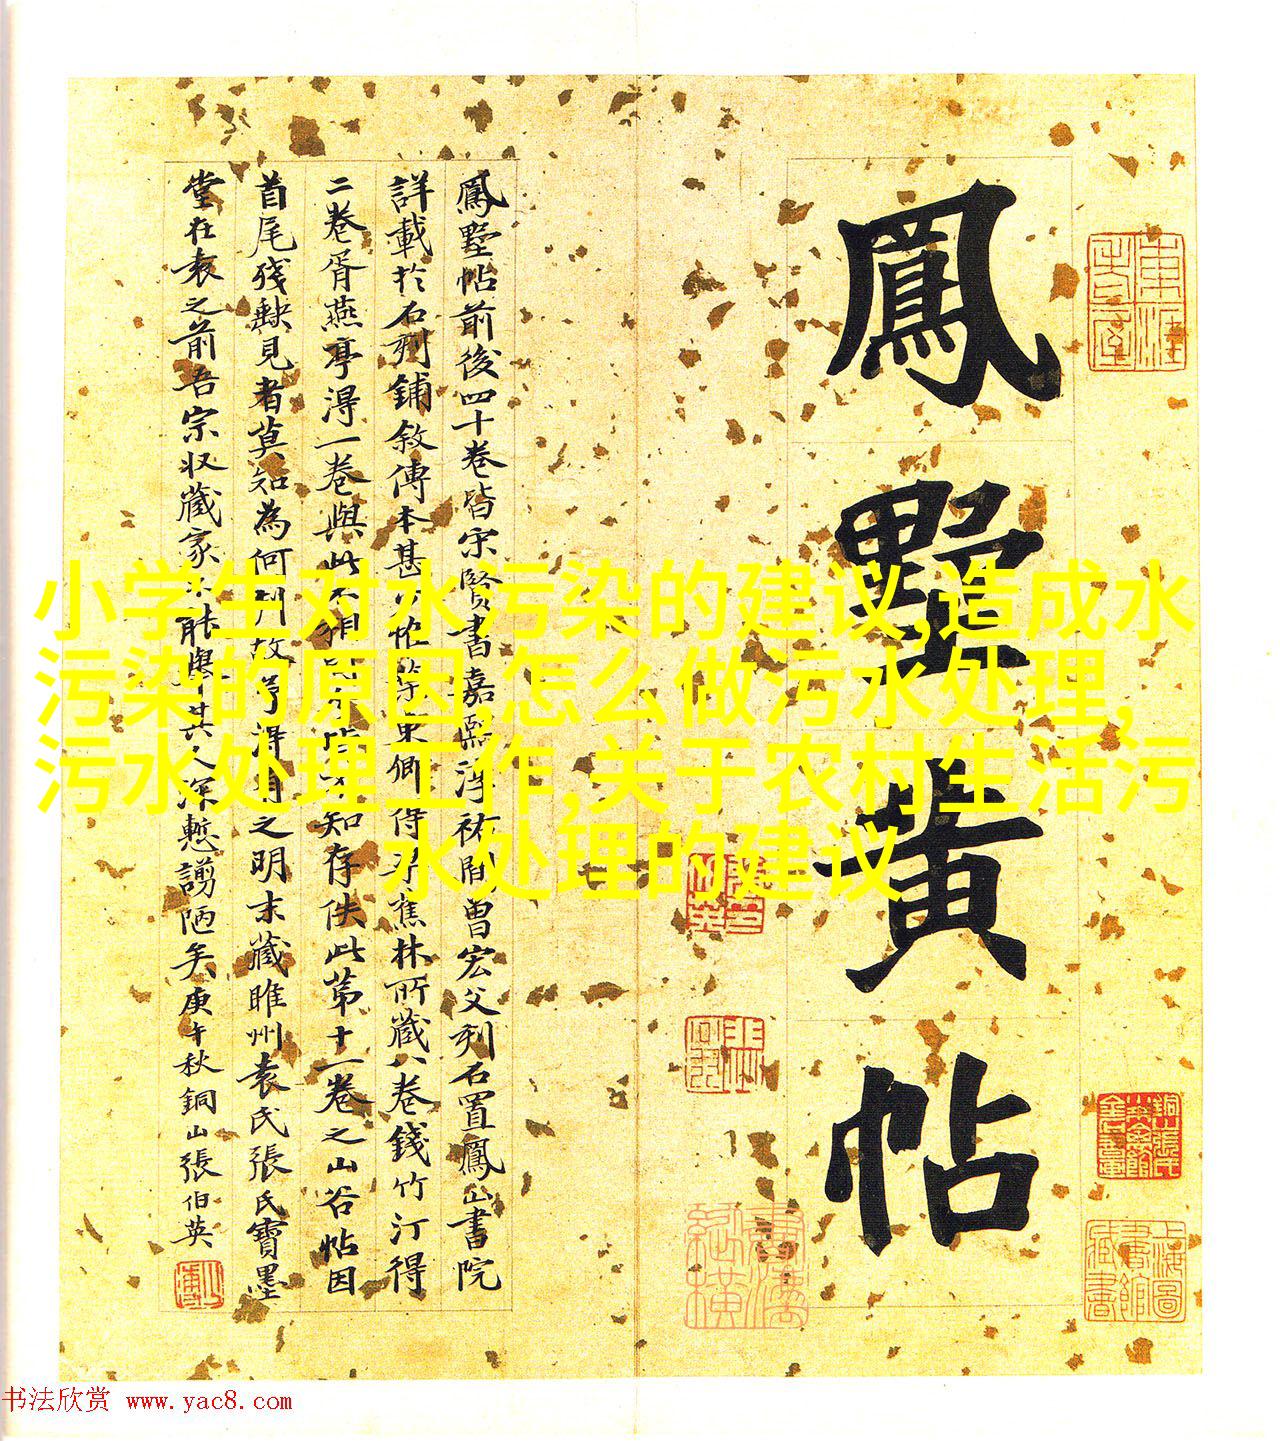 鳳墅黄帖
鳳墅帖前後四十卷皆宋賢書嘉熙淳祐間曾宏父刻石置鳳山書院
詳載於石刻鋪敘傳本甚少惟葉東卿得
蕉林所藏八卷錢竹汀得
二卷胥燕亭得一卷與此不相
知存佚此第十一卷之山谷帖因
首尾殘缺見者莫知為何刊故
得有之明末藏睢州袁氏張氏寶墨
堂在袁之前吾宗収藏家不能舉其人深慙謭陋矣庚午秋銅山張伯英
小学生对水污染的建议,造成水
污染的原因,怎么做污水处理,
污水处理工作,关于农村生活污
水处理的建议
上海圖
書館
藏書
书法欣赏 www.yac8.com